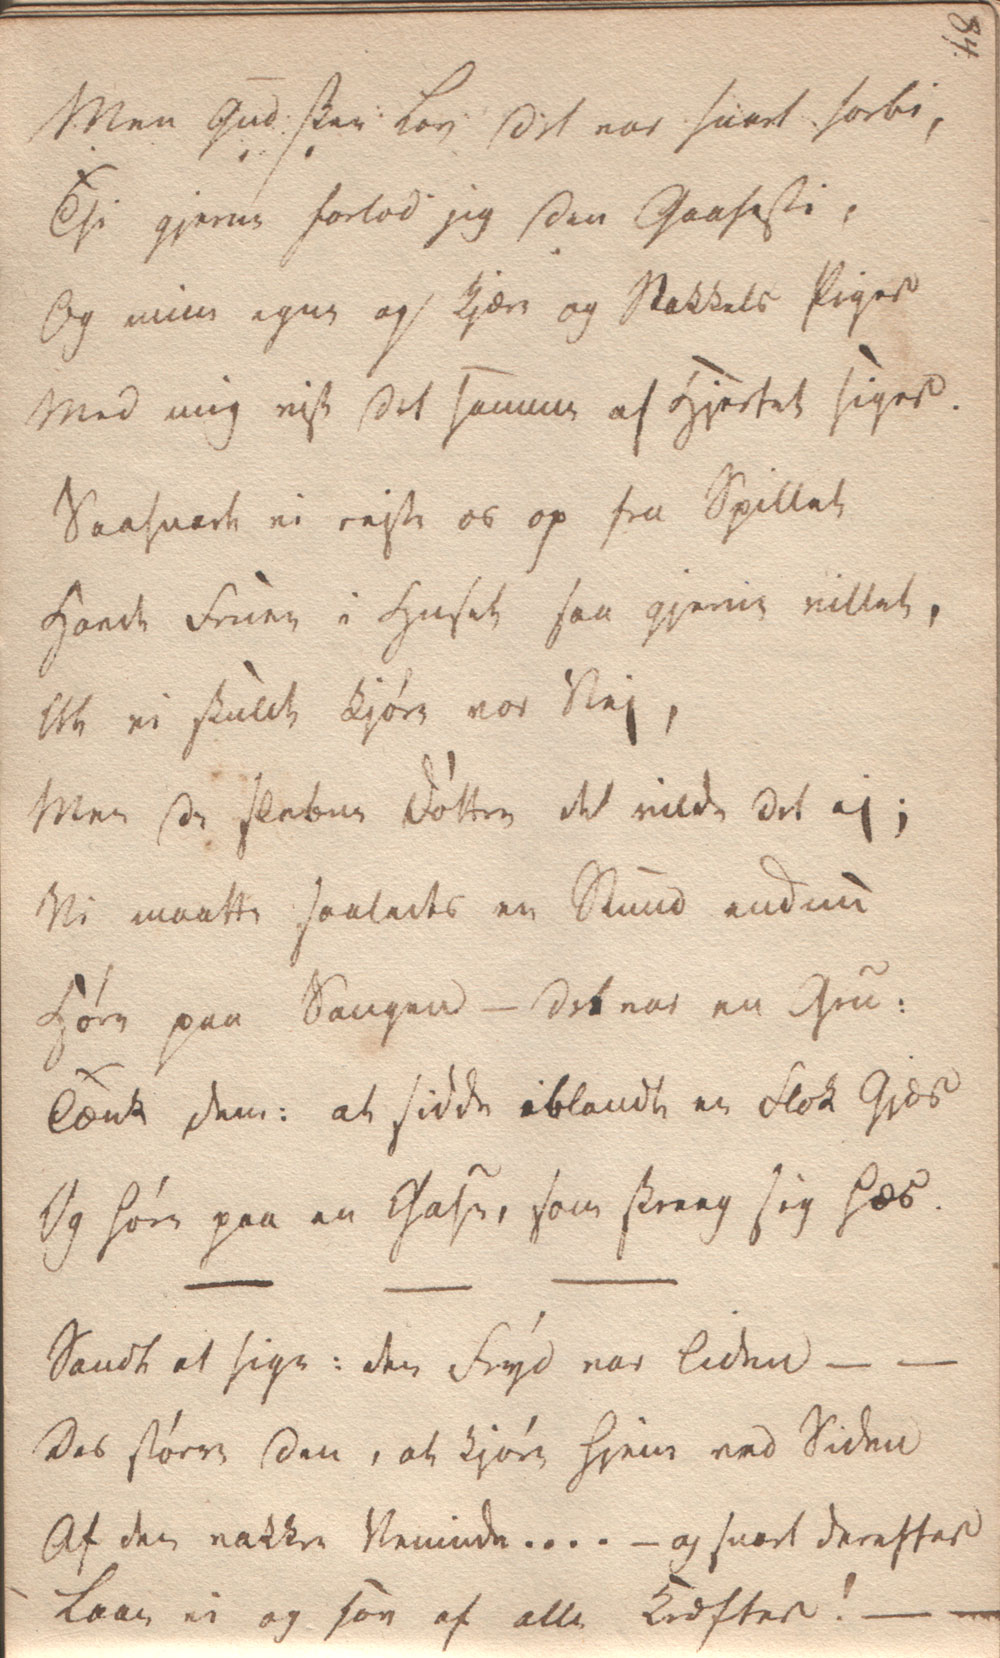 84.
Men Gud skee Lov det var snart forbi,
Thi gjerne forlod jeg den Gaasesti,
Og mine egne og kjære og Stakkels Piger
Med mig vist det samme af Hjertet siger.
Saasnart vi rejste os op fra Spillet
Havde Fruen i Huset saa gjerne villet,
At vi skulde kjøre vor Vej,
Men de Døttre det vilde det ej;
Vi maatte saaledes en Stund endnu
Høre paa Sangen – det var en Gru:
Tænk dem: at sidde iblandt en Flok Gjæs
Og høre paa en Gase, som skreeg sig hæs.
Sandt at sige: den Fryd var liden — —
Des større den, at kjøre hjem ved Siden
Af den vakkre Veninde.... — og snart derefter
Laae vi og sov af alle Kræfter! — —